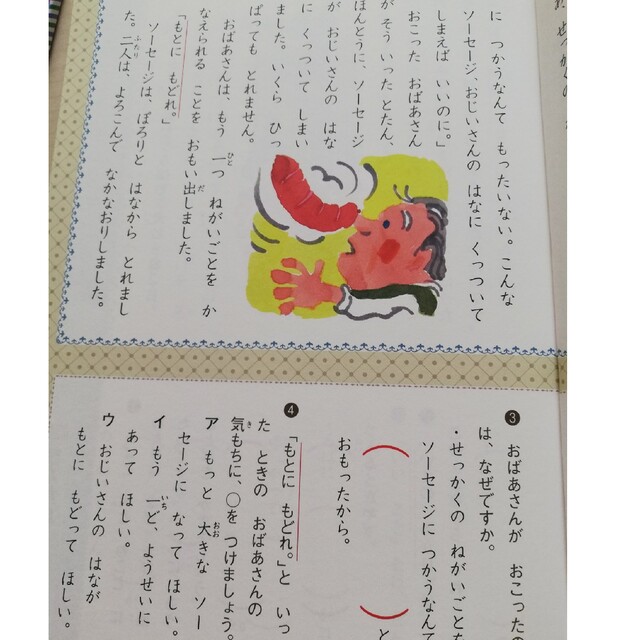 に つかうなんて もったいない。こんな
ソーセージ、おじいさんの はなに くっついて
しまえば いいのに。」
おこった おばあさん
が そう いった とたん、
ほんとうに、ソーセージ
が おじいさんの はな
に くっついて しまい
ました。いくら ひっ
ぱっても とれません。
おばあさんは、もう 一つ ねがいごとを か
なえられる ことを おもい出しました。
「もとに もどれ。」
ソーセージは、ぽろりと はなから とれまし
た。二人は、よろこんで なかなおりしました。
❸ おばあさんが おこったの
は、なぜですか。
・せっかくの ねがいごとを
ソーセージに つかうなんて
( ) と
おもったから。
❹ 「もとに もどれ。」と いっ
た ときの おばあさんの
気もちに、○を つけましょう。
ア もっと 大きな ソー
セージに なって ほしい。
イ もう 一ど、ようせいに
あって ほしい。
ウ おじいさんの はなが
もとに もどって ほしい。